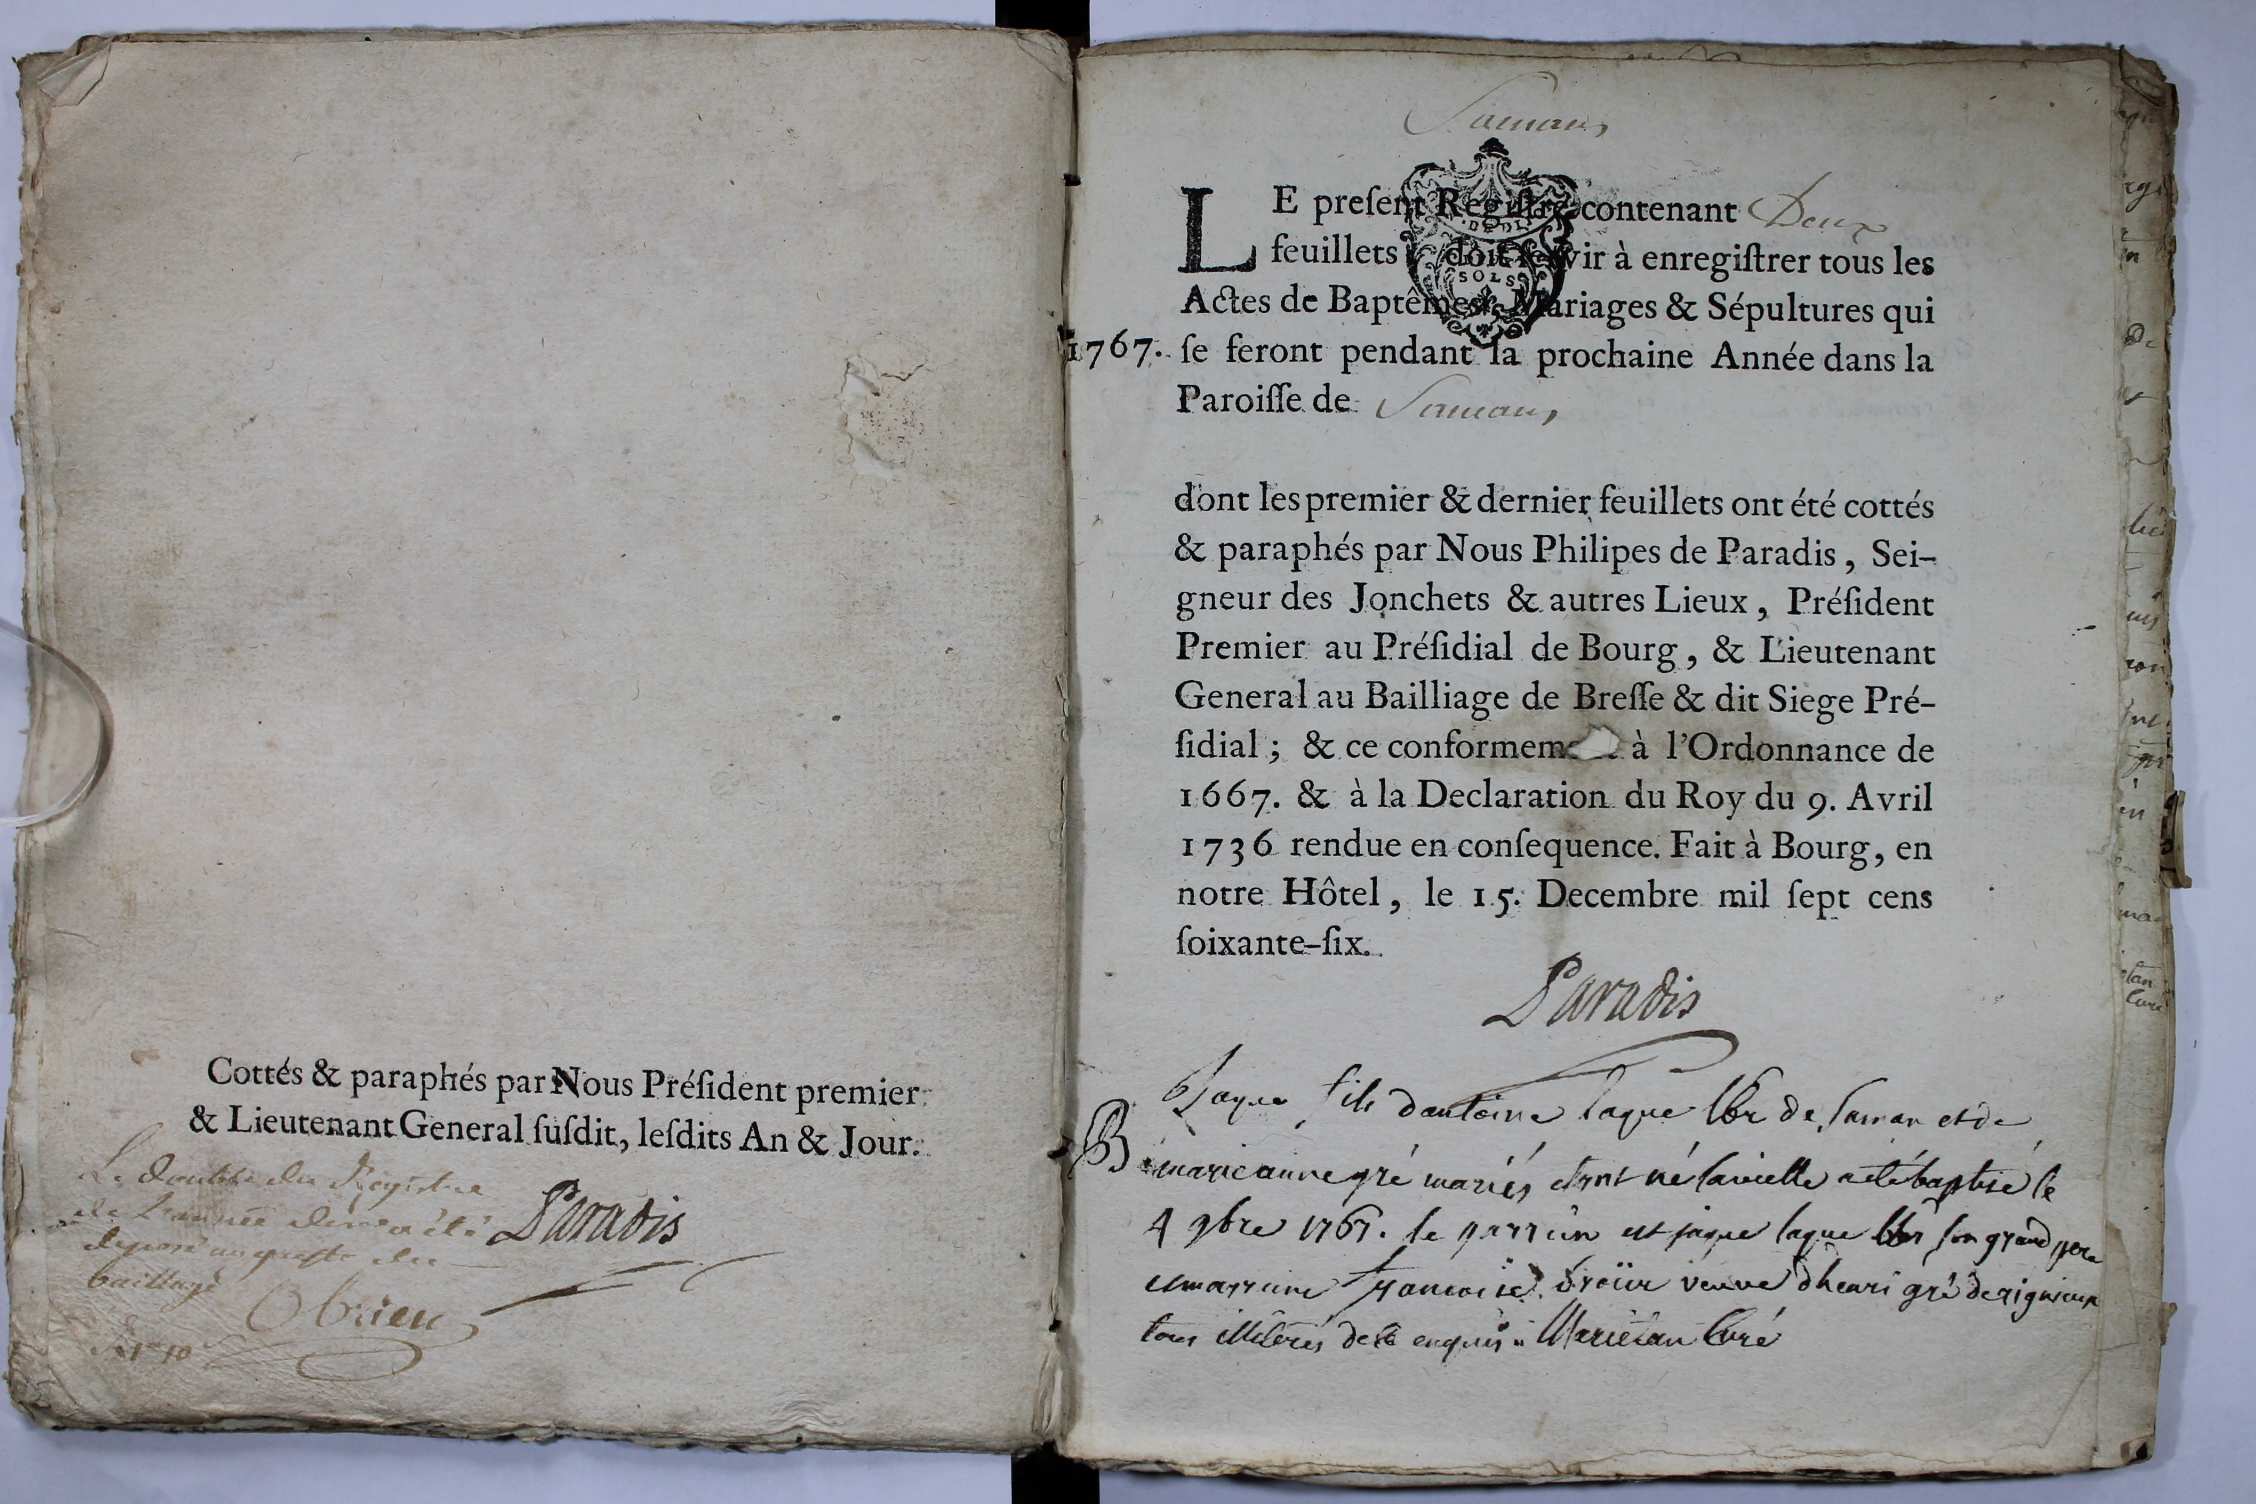 Cottés & paraphés par Nous Président premier
& Lieutenant General ſuſdit, leſdits An & Jour.
Le double du Registre
de L'année a été
deposé au greffe du
bailliage
Paradis
Obrien
Samans
LE preſent Regiſtre contenant Deux
feuillets doit ſervir à enregiſtrer tous les
Actes de Baptêmes, Mariages & Sépultures qui
1767. ſe feront pendant la prochaine Année dans la
Paroiſſe de Samans,
SOLS
dont les premier & dernier feuillets ont été cottés
& paraphés par Nous Philipes de Paradis, Sei-
gneur des Jonchets & autres Lieux, Préſident
Premier au Préſidial de Bourg, & Lieutenant
General au Bailliage de Breſſe & dit Siege Pré-
ſidial; & ce conformem à l'Ordonnance de
1667. & à la Declaration du Roy du 9. Avril
1736 rendue en conſequence. Fait à Bourg, en
notre Hôtel, le 15. Decembre mil ſept cens
ſoixante-ſix.
Paradis
fils dantoine laque lbr de Saman et de
B marie anne gré mariés etant né la vielle a été baptisé le
4 9bre 1767. le parrein est jaque laque lbr son grand pere
et marrine francoise veuve dhenri gré de rignieux
tous illiterés de ce enquis Curé